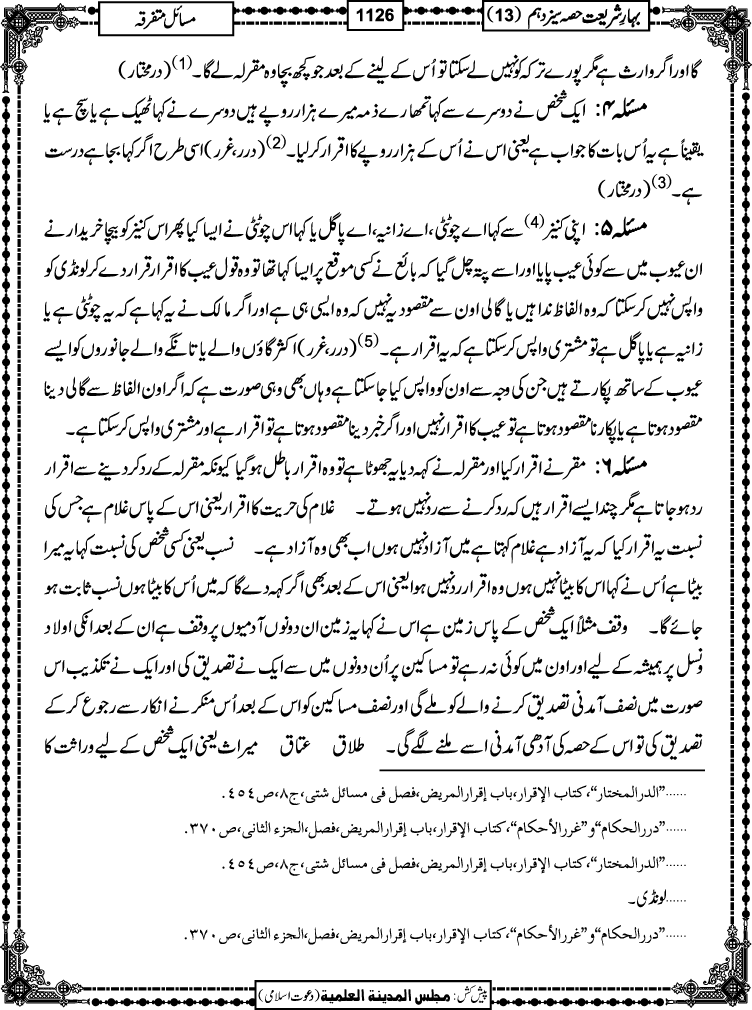 بہارِ شریعت حصہ سیزدہم (13)
1126
مسائل متفرقہ
گا اور اگر وارث ہے مگر پورے ترکہ کو نہیں لے سکتا تو اُس کے لینے کے بعد جو کچھ بچا وہ مقرلہ لے گا۔(1) (درمختار)
مسئلہ ۴: ایک شخص نے دوسرے سے کہا تمھارے ذمہ میرے ہزار روپے ہیں دوسرے نے کہا ٹھیک ہے یا سچ ہے یا
یقیناً ہے یہ اُس بات کا جواب ہے یعنی اس نے اُس کے ہزار روپے کا اقرار کر لیا۔(2) (درر، غرر) اسی طرح اگر کہا بجا ہے درست
ہے۔(3) (درمختار)
مسئلہ ۵: اپنی کنیز(4) سے کہا اے چوٹٹی، اے زانیہ، اے پاگل یا کہا اس چوٹٹی نے ایسا کیا پھر اس کنیز کو بیچا خریدار نے
ان عیوب میں سے کوئی عیب پایا اور اسے پتہ چل گیا کہ بائع نے کسی موقع پر ایسا کہا تھا تو وہ قول عیب کا اقرار قرار دے کر لونڈی کو
واپس نہیں کر سکتا کہ وہ الفاظ ندا ہیں یا گالی اون سے مقصود یہ نہیں کہ وہ ایسی ہی ہے اور اگر مالک نے یہ کہا ہے کہ یہ چوٹٹی ہے یا
زانیہ ہے یا پاگل ہے تو مشتری واپس کر سکتا ہے کہ یہ اقرار ہے۔(5) (درر، غرر) اکثر گاؤں والے یا تانگے والے جانوروں کو ایسے
عیوب کے ساتھ پکارتے ہیں جن کی وجہ سے اون کو واپس کیا جا سکتا ہے وہاں بھی وہی صورت ہے کہ اگر اون الفاظ سے گالی دینا
مقصود ہوتا ہے یا پکارنا مقصود ہوتا ہے تو عیب کا اقرار نہیں اور اگر خبر دینا مقصود ہوتا ہے تو اقرار ہے اور مشتری واپس کر سکتا ہے۔
مسئلہ ۶: مقر نے اقرار کیا اور مقرلہ نے کہہ دیا یہ جھوٹا ہے تو وہ اقرار باطل ہو گیا کیونکہ مقرلہ کے رد کر دینے سے اقرار
رد ہو جاتا ہے مگر چند ایسے اقرار ہیں کہ رد کرنے سے رد نہیں ہوتے۔ غلام کی حریت کا اقرار یعنی اس کے پاس غلام ہے جس کی
نسبت یہ اقرار کیا کہ یہ آزاد ہے غلام کہتا ہے میں آزاد نہیں ہوں اب بھی وہ آزاد ہے۔ نسب یعنی کسی شخص کی نسبت کہا یہ میرا
بیٹا ہے اُس نے کہا اس کا بیٹا نہیں ہوں وہ اقرار رد نہیں ہوا یعنی اس کے بعد بھی اگر کہہ دے گا کہ میں اُس کا بیٹا ہوں نسب ثابت ہو
جائے گا۔ وقف مثلاً ایک شخص کے پاس زمین ہے اس نے کہا یہ زمین ان دونوں آدمیوں پر وقف ہے ان کے بعد انکی اولاد
ونسل پر ہمیشہ کے لیے اور اون میں کوئی نہ رہے تو مساکین پر اُن دونوں میں سے ایک نے تصدیق کی اور ایک نے تکذیب اس
صورت میں نصف آمدنی تصدیق کرنے والے کو ملے گی اور نصف مساکین کو اس کے بعد اُس منکر نے انکار سے رجوع کر کے
تصدیق کی تو اس کے حصہ کی آدھی آمدنی اسے ملنے لگے گی۔ طلاق عتاق میراث یعنی ایک شخص کے لیے وراثت کا
......"الدرالمختار"، کتاب الإقرار، باب إقرار المریض، فصل فی مسائل شتی، ج۸، ص۴۵۴.
......"دررالحکام" و "غررالأحکام"، کتاب الإقرار، باب إقرار المریض، فصل، الجزء الثانی، ص۳۷۰.
......"الدرالمختار"، کتاب الإقرار، باب إقرار المریض، فصل فی مسائل شتی، ج۸، ص۴۵۴.
......لونڈی۔
......"دررالحکام" و "غررالأحکام"، کتاب الإقرار، باب إقرار المریض، فصل، الجزء الثانی، ص۳۷۰.
پیش کش: مجلس المدینة العلمیة (دعوت اسلامی)